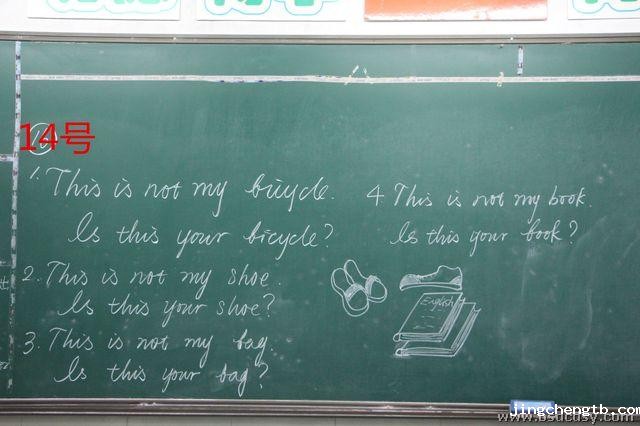 14号
1. This is not my bicycle.
Is this your bicycle?
2. This is not my shoe.
Is this your shoe?
3. This is not my bag.
Is this your bag?
4. This is not my book.
Is this your book?
English
jingchengtb.com
www.bsdcdsy.com